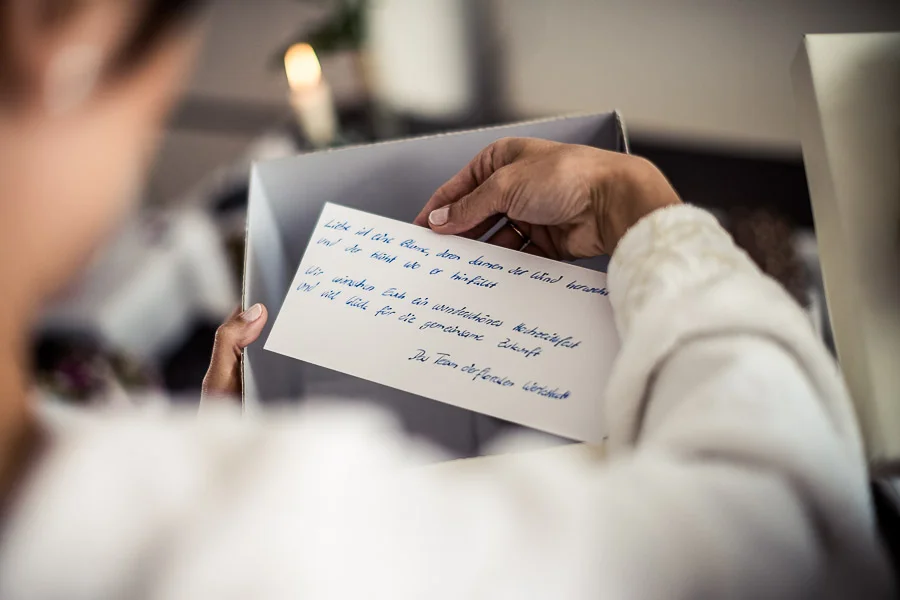 Liebe ist eine Blume, deren Samen der Wind herweht
und der blüht wo er hinfällt
Wir wünschen Euch ein wunderschönes Hochzeitsfest
und viel Glück für die gemeinsame Zukunft
Das Team der floralen Werkstatt